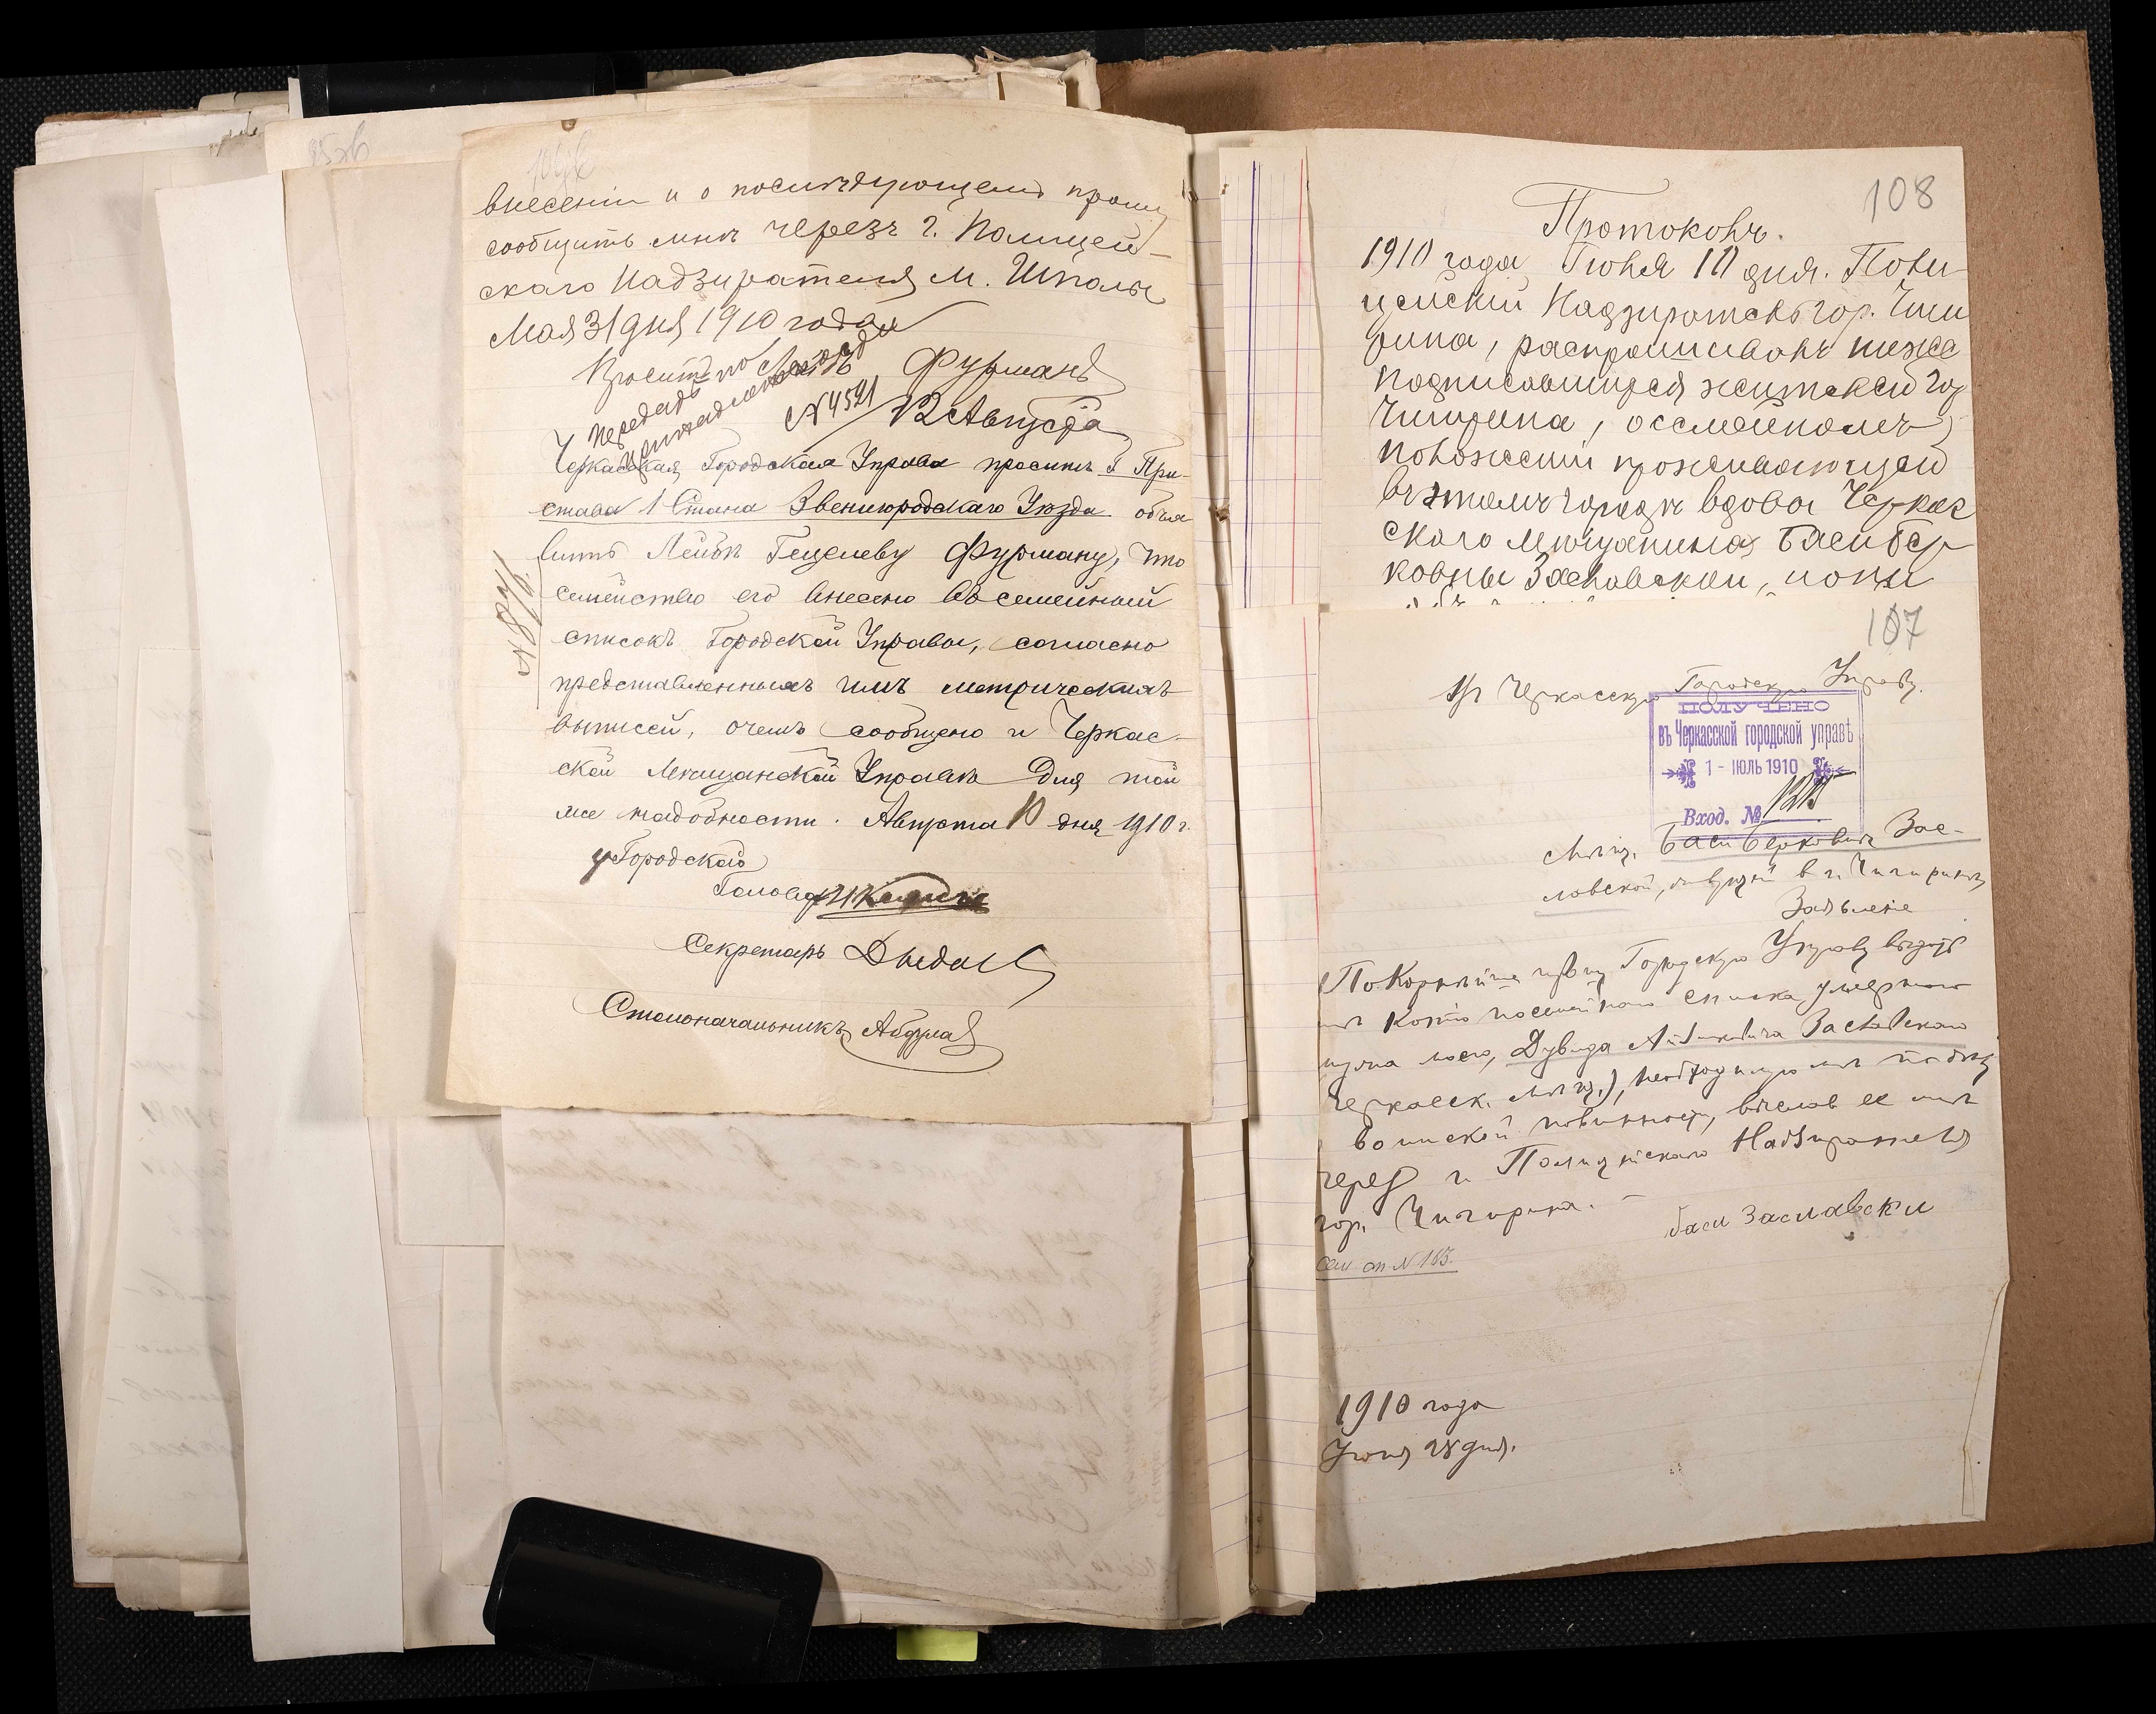 внесеніи и о послѣдующемъ прошу
сообщить мнѣ черезъ г. Полицей-
скаго Надзирателя М. Шполы
Мая 31 дня 1910 года
Фурманъ
№ 4591 12 Августа
Черкасская Городская Управа проситъ Г. При-
става 1 Стана Звенигородскаго Уѣзда объя
вить Лейбѣ Гецелеву Фурману, что
семейство его внесено въ семейный
списокъ Городской Управы, согласно
представленныхъ имъ метрическихъ
выписей, о чемъ сообщено и Черкас-
ской Мѣщанской Управѣ для той
же надобности. Августа 10 дня 1910 г.
Городского
Головы
Секретарь
Столоначальникъ
108
Протоколъ.
1910 года Іюня 10 дня. Поли-
цейскій Надзиратель гор. Чиги
рина, распрашивалъ ниже
подписавшихся жителей гор
Чигирина, о семейномъ
положеніи проживающей
въ этомъ городѣ вдовы Черкас
скаго мѣщанина Баси Бер
ковны Заславской, кои
107
Въ Черкасскую Городскую Управу.
ПОЛУЧЕНО
въ Черкасской городской управѣ
1 - ІЮЛЬ 1910
Вход. №
Мѣщ. Баси Берковны Зас-
лавской, живущей въ г. Чигиринѣ
Заявленіе
Покорнѣйше прошу Городскую Управу выдать
мнѣ копію посемейнаго списка умершаго
мужа моего, Дувида Заславскаго
Черкасск. мѣщ.), необходимую мнѣ по
воинской повинности, выславъ ее мнѣ
через г. Полицейскаго Надзирателя
гор. Чигирина.
Баси Заславски
Сем сп № 165.
1910 года
Іюня 28 дня.